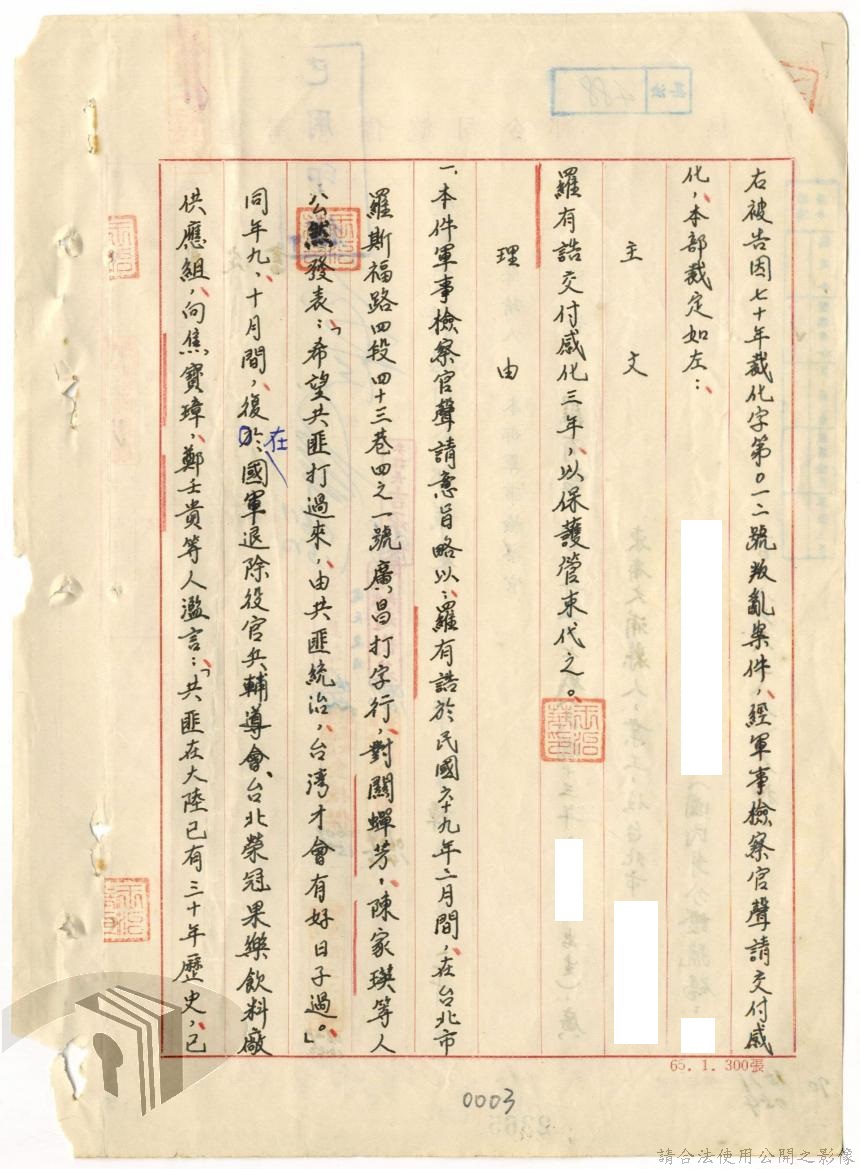 右被告因七十年裁化字第〇一二號叛亂案件，經軍事檢察官聲請交付感
化，本部裁定如左：
主文
羅有誥交付感化三年，以保護管束代之。
理由
一、本件軍事檢察官聲請意旨略以：羅有誥於民國六十九年二月間，在台北市
羅斯福路四段四十三巷四之一號廣昌打字行，對關蟬芳，陳家瑛等人
公然發表：「希望共匪打過來，由共匪統治，台湾才會有好日子過。」
同年九、十月間，復在國軍退除役官兵輔導會台北榮冠果樂飲料廠
供應組，向焦寶璋，鄭壬貴等人濫言：「共匪在大陸已有三十年歷史，已
65. 1. 300張
0003
488
請合法使用公開之影像